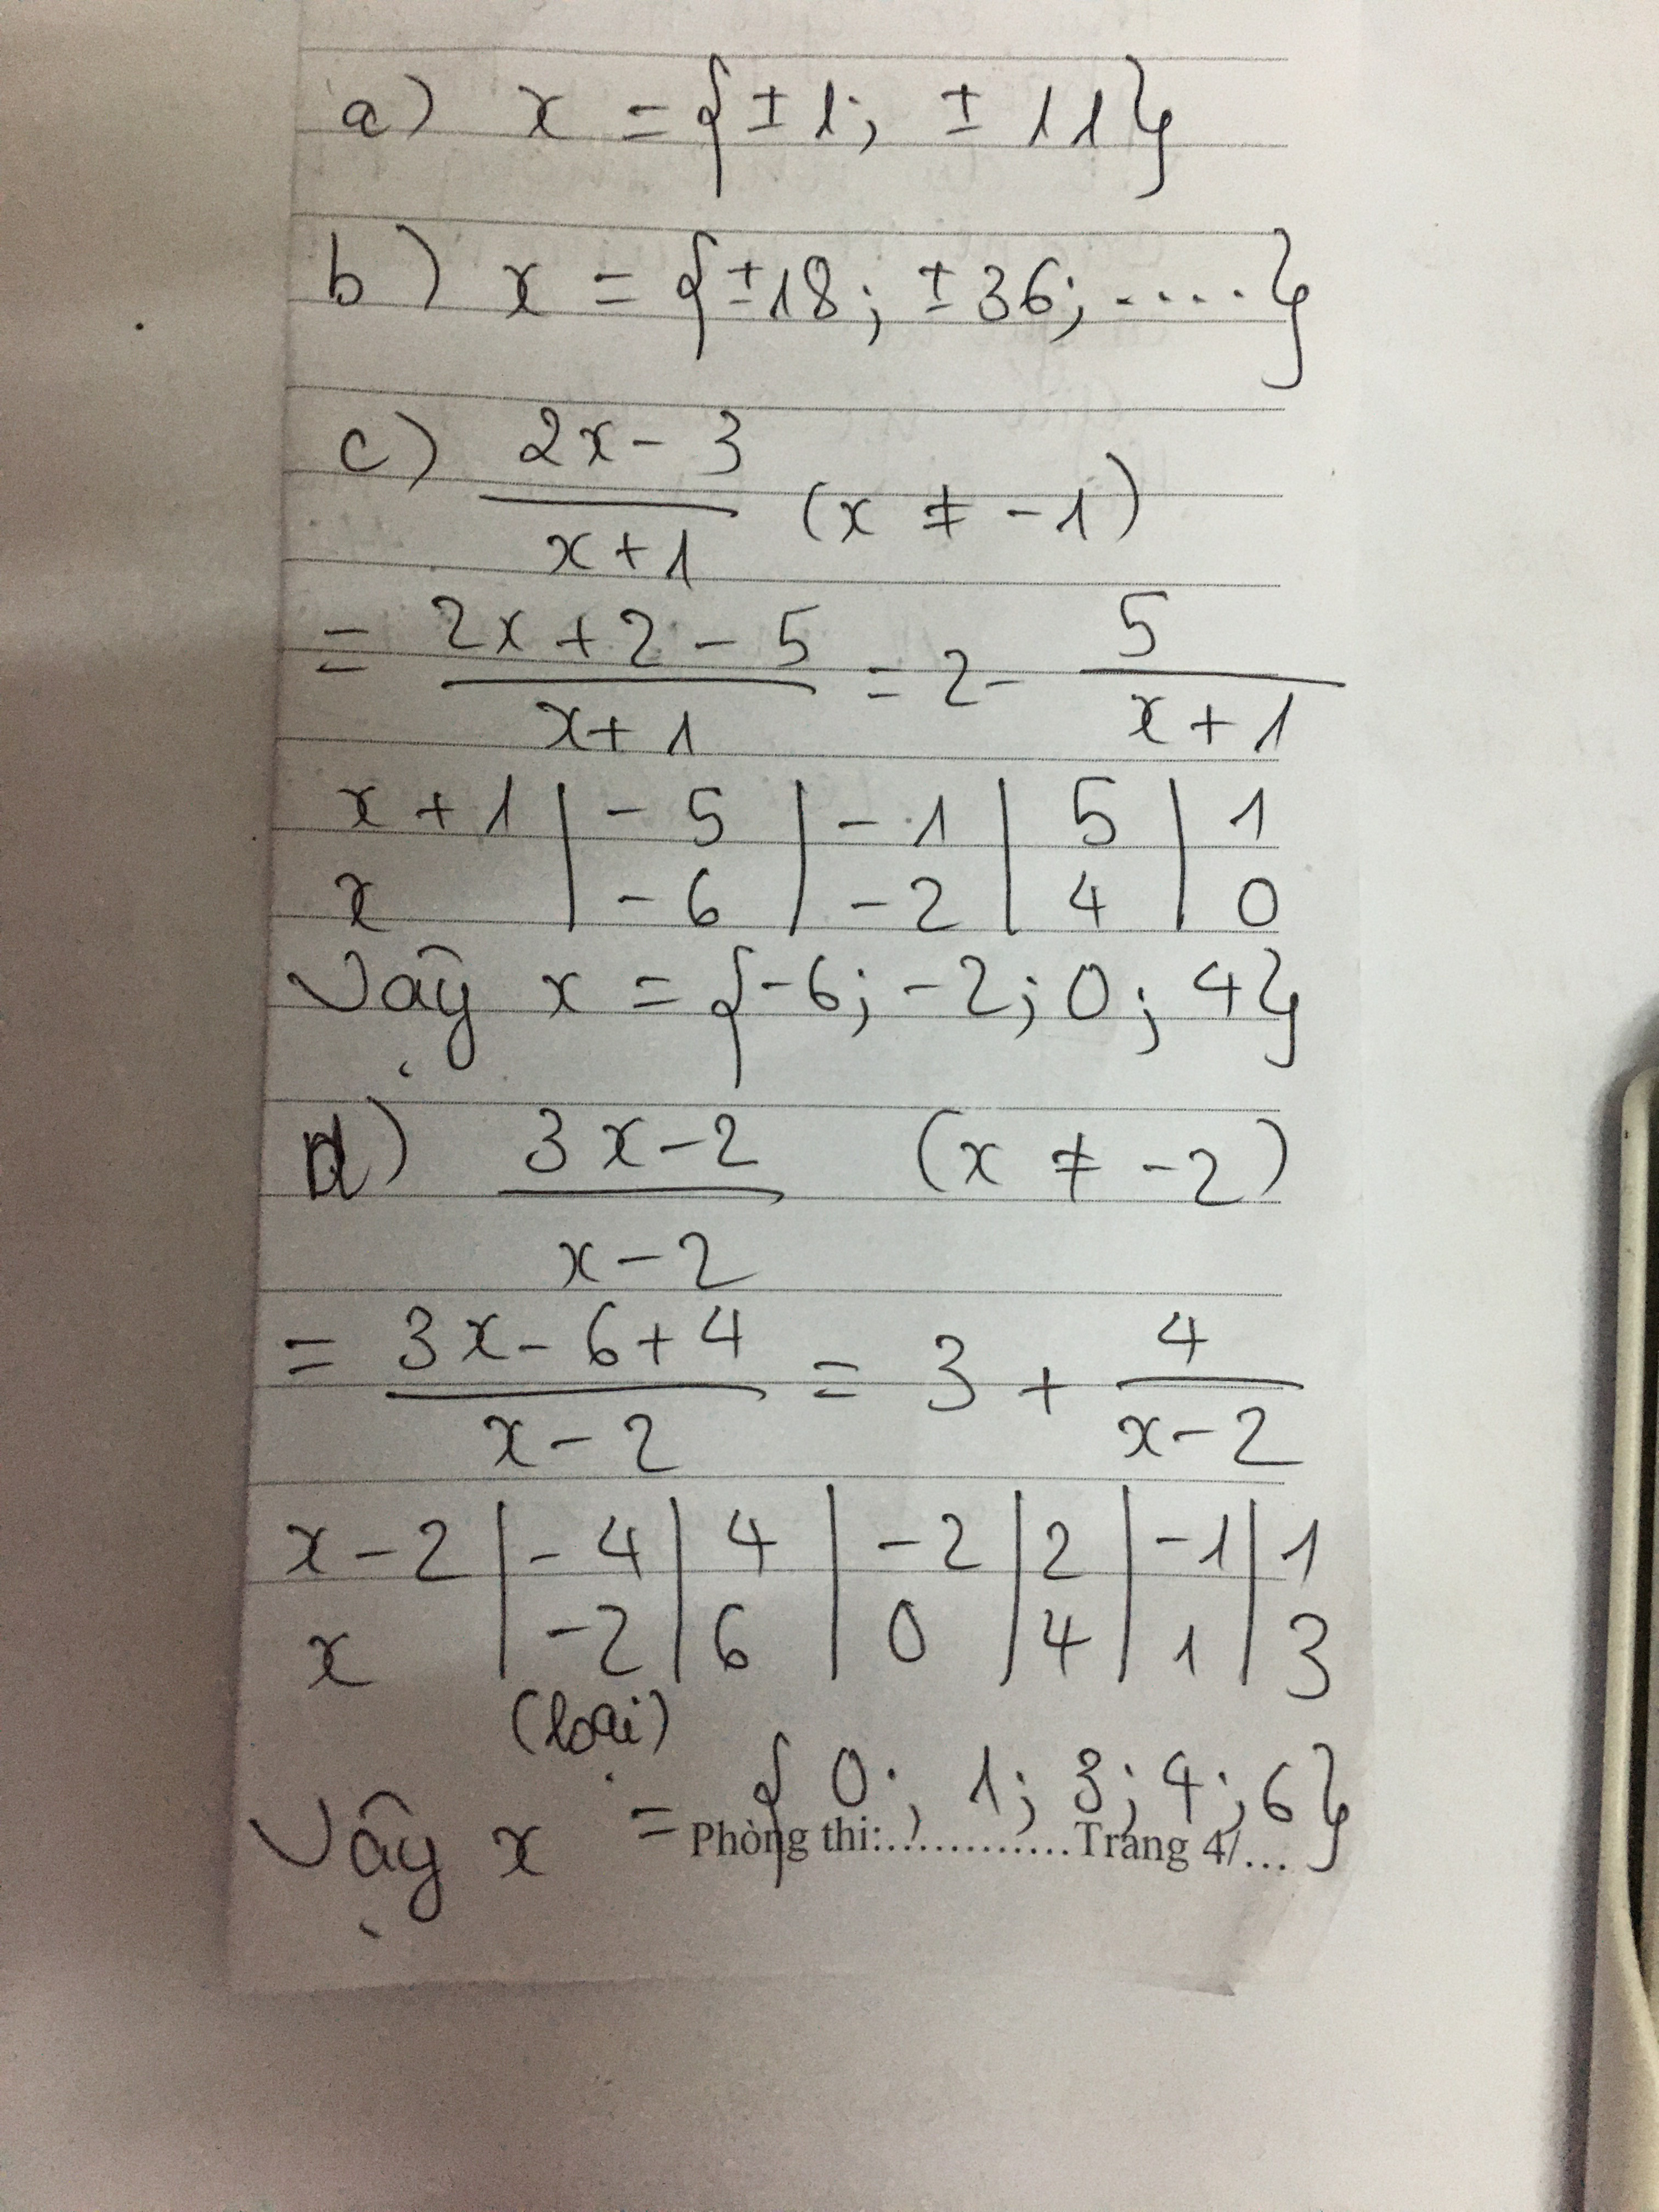 a) x = {±1; ±11}
b) x = {±18; ±36; .....}
c) 2x-3 / x+1 (x ≠ -1)
= 2x+2-5 / x+1 = 2- 5 / x+1
x+1 | -5 | -1 | 5 | 1
x | -6 | -2 | 4 | 0
Vậy x = {-6; -2; 0; 4}
d) 3x-2 / x-2 (x ≠ -2)
= 3x-6+4 / x-2 = 3 + 4 / x-2
x-2 | -4 | 4 | -2 | 2 | -1 | 1
x | -2 | 6 | 0 | 4 | 1 | 3
(loại)
Vậy x = {0; 1; 3; 4; 6}
Phòng thi:............Trang 4/...